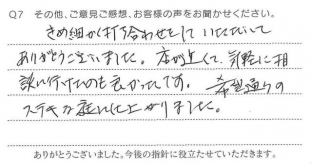 Q7 その他、ご意見ご感想、お客様の声をお聞かせください。
きめ細かく打ち合わせをして いただいて
ありがとうございました。店が近くて、気軽に相
談に行けたのも良かったです。 希望通りの
ステキな庭に仕上がりました。
ありがとうございました。今後の指針に役立たせていただきます。